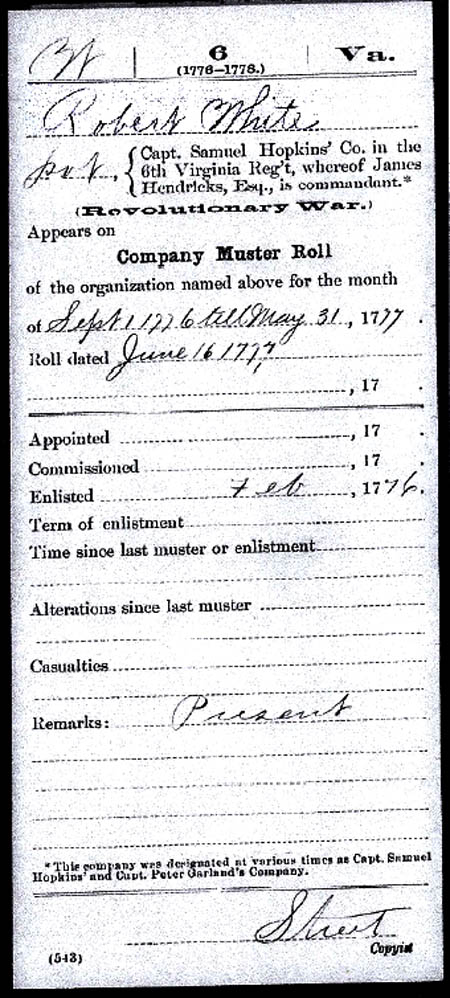 W | 6 | Va.
(1776–1778.)
Robert White
pvt., { Capt. Samuel Hopkins' Co. in the
6th Virginia Reg't, whereof James
Hendricks, Esq., is commandant.*
(Revolutionary War.)
Appears on
Company Muster Roll
of the organization named above for the month
of Sept 1 1776 till May 31, 1777.
Roll dated June 16 1777
, 17 .
Appointed , 17 .
Commissioned , 17 .
Enlisted Feb , 1776.
Term of enlistment
Time since last muster or enlistment
Alterations since last muster
Casualties
Remarks: Present
*This company was designated at various times as Capt. Samuel
Hopkins' and Capt. Peter Garland's Company.
Street
(543) Copyist